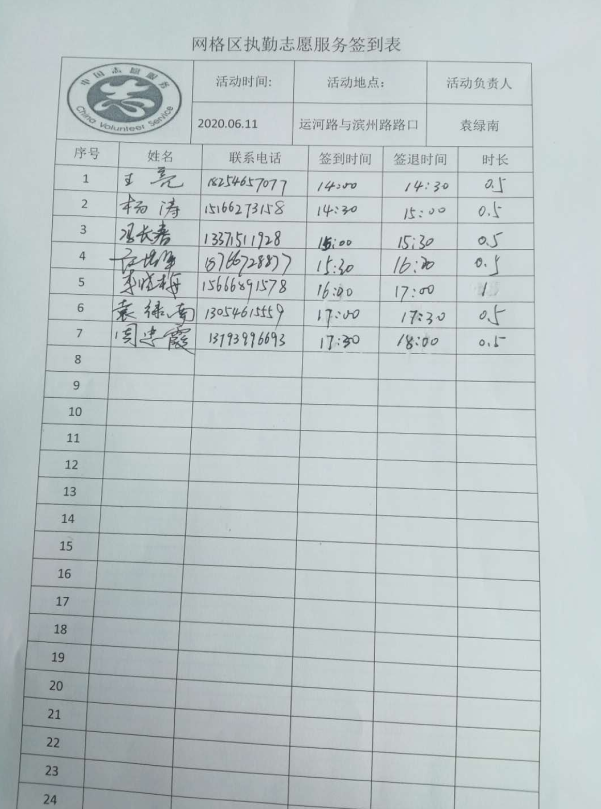 网格区执勤志愿服务签到表
中国志愿服务
China Volunteer Service
活动时间: 活动地点: 活动负责人
2020.06.11 运河路与滨州路路口 袁绿南
序号 姓名 联系电话 签到时间 签退时间 时长
1 王亮 18254657077 14:00 14:30 0.5
2 杨涛 15166273158 14:30 15:00 0.5
3 冯长春 13371511928 15:00 15:30 0.5
4 15:30 16:00 0.5
5 李晓梅 15666891578 16:00 17:00 1
6 袁绿南 13054615559 17:00 17:30 0.5
7 周忠霞 13793996693 17:30 18:00 0.5
8
9
10
11
12
13
14
15
16
17
18
19
20
21
22
23
24